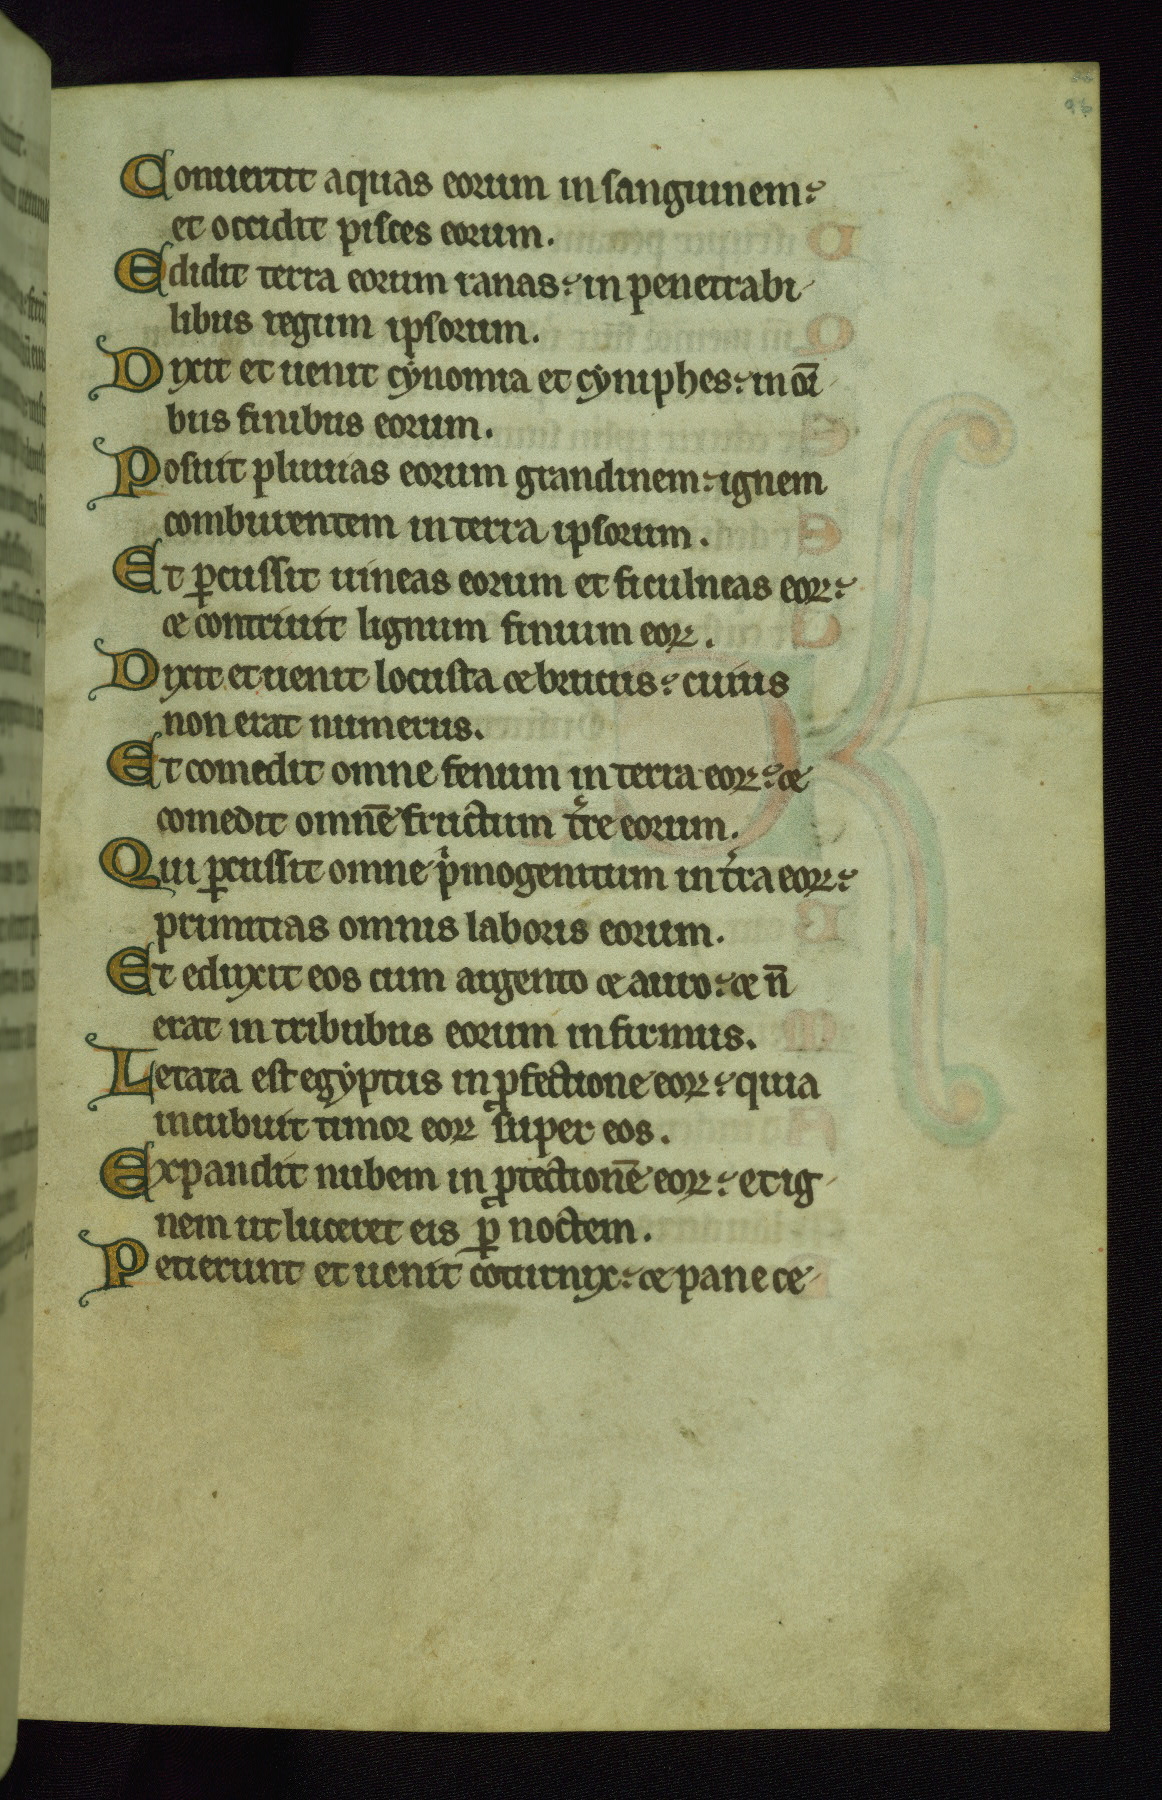 Conuertit aquas eorum in sanguinem:
et occidit pisces eorum.
Edidit terra eorum ranas: in penetrabi
libus regum ipsorum.
Dixit et uenit cynomia et cyniphes: in oı̄
bus finibus eorum.
Posuit pluuias eorum grandinem: ignem
comburentem in terra ipsorum.
Et ꝑcussit uineas eorum et ficulneas eoꝝ:
⁊ contriuit lignum finium eoꝝ.
Dixit et uenit locusta ⁊ brucus: cuius
non erat numerus.
Et comedit omne fenum in terra eoꝝ: ⁊
comedit omnē fructum t̓re eorum.
Qui ꝑcussit omne pͥmogenitum in t̓ra eoꝝ:
primitias omnis laboris eorum.
Et eduxit eos cum argento ⁊ auro: ⁊ n̄
erat in tribubus eorum infirmus.
Letata est egyptus in ꝓfectione eoꝝ: quia
incubuit timor eoꝝ super eos.
Expandit nubem in ꝓtectionē eoꝝ: et ig
nem ut luceret eis ꝑ noctem.
Petierunt et uenit coturnix: ⁊ pane ce